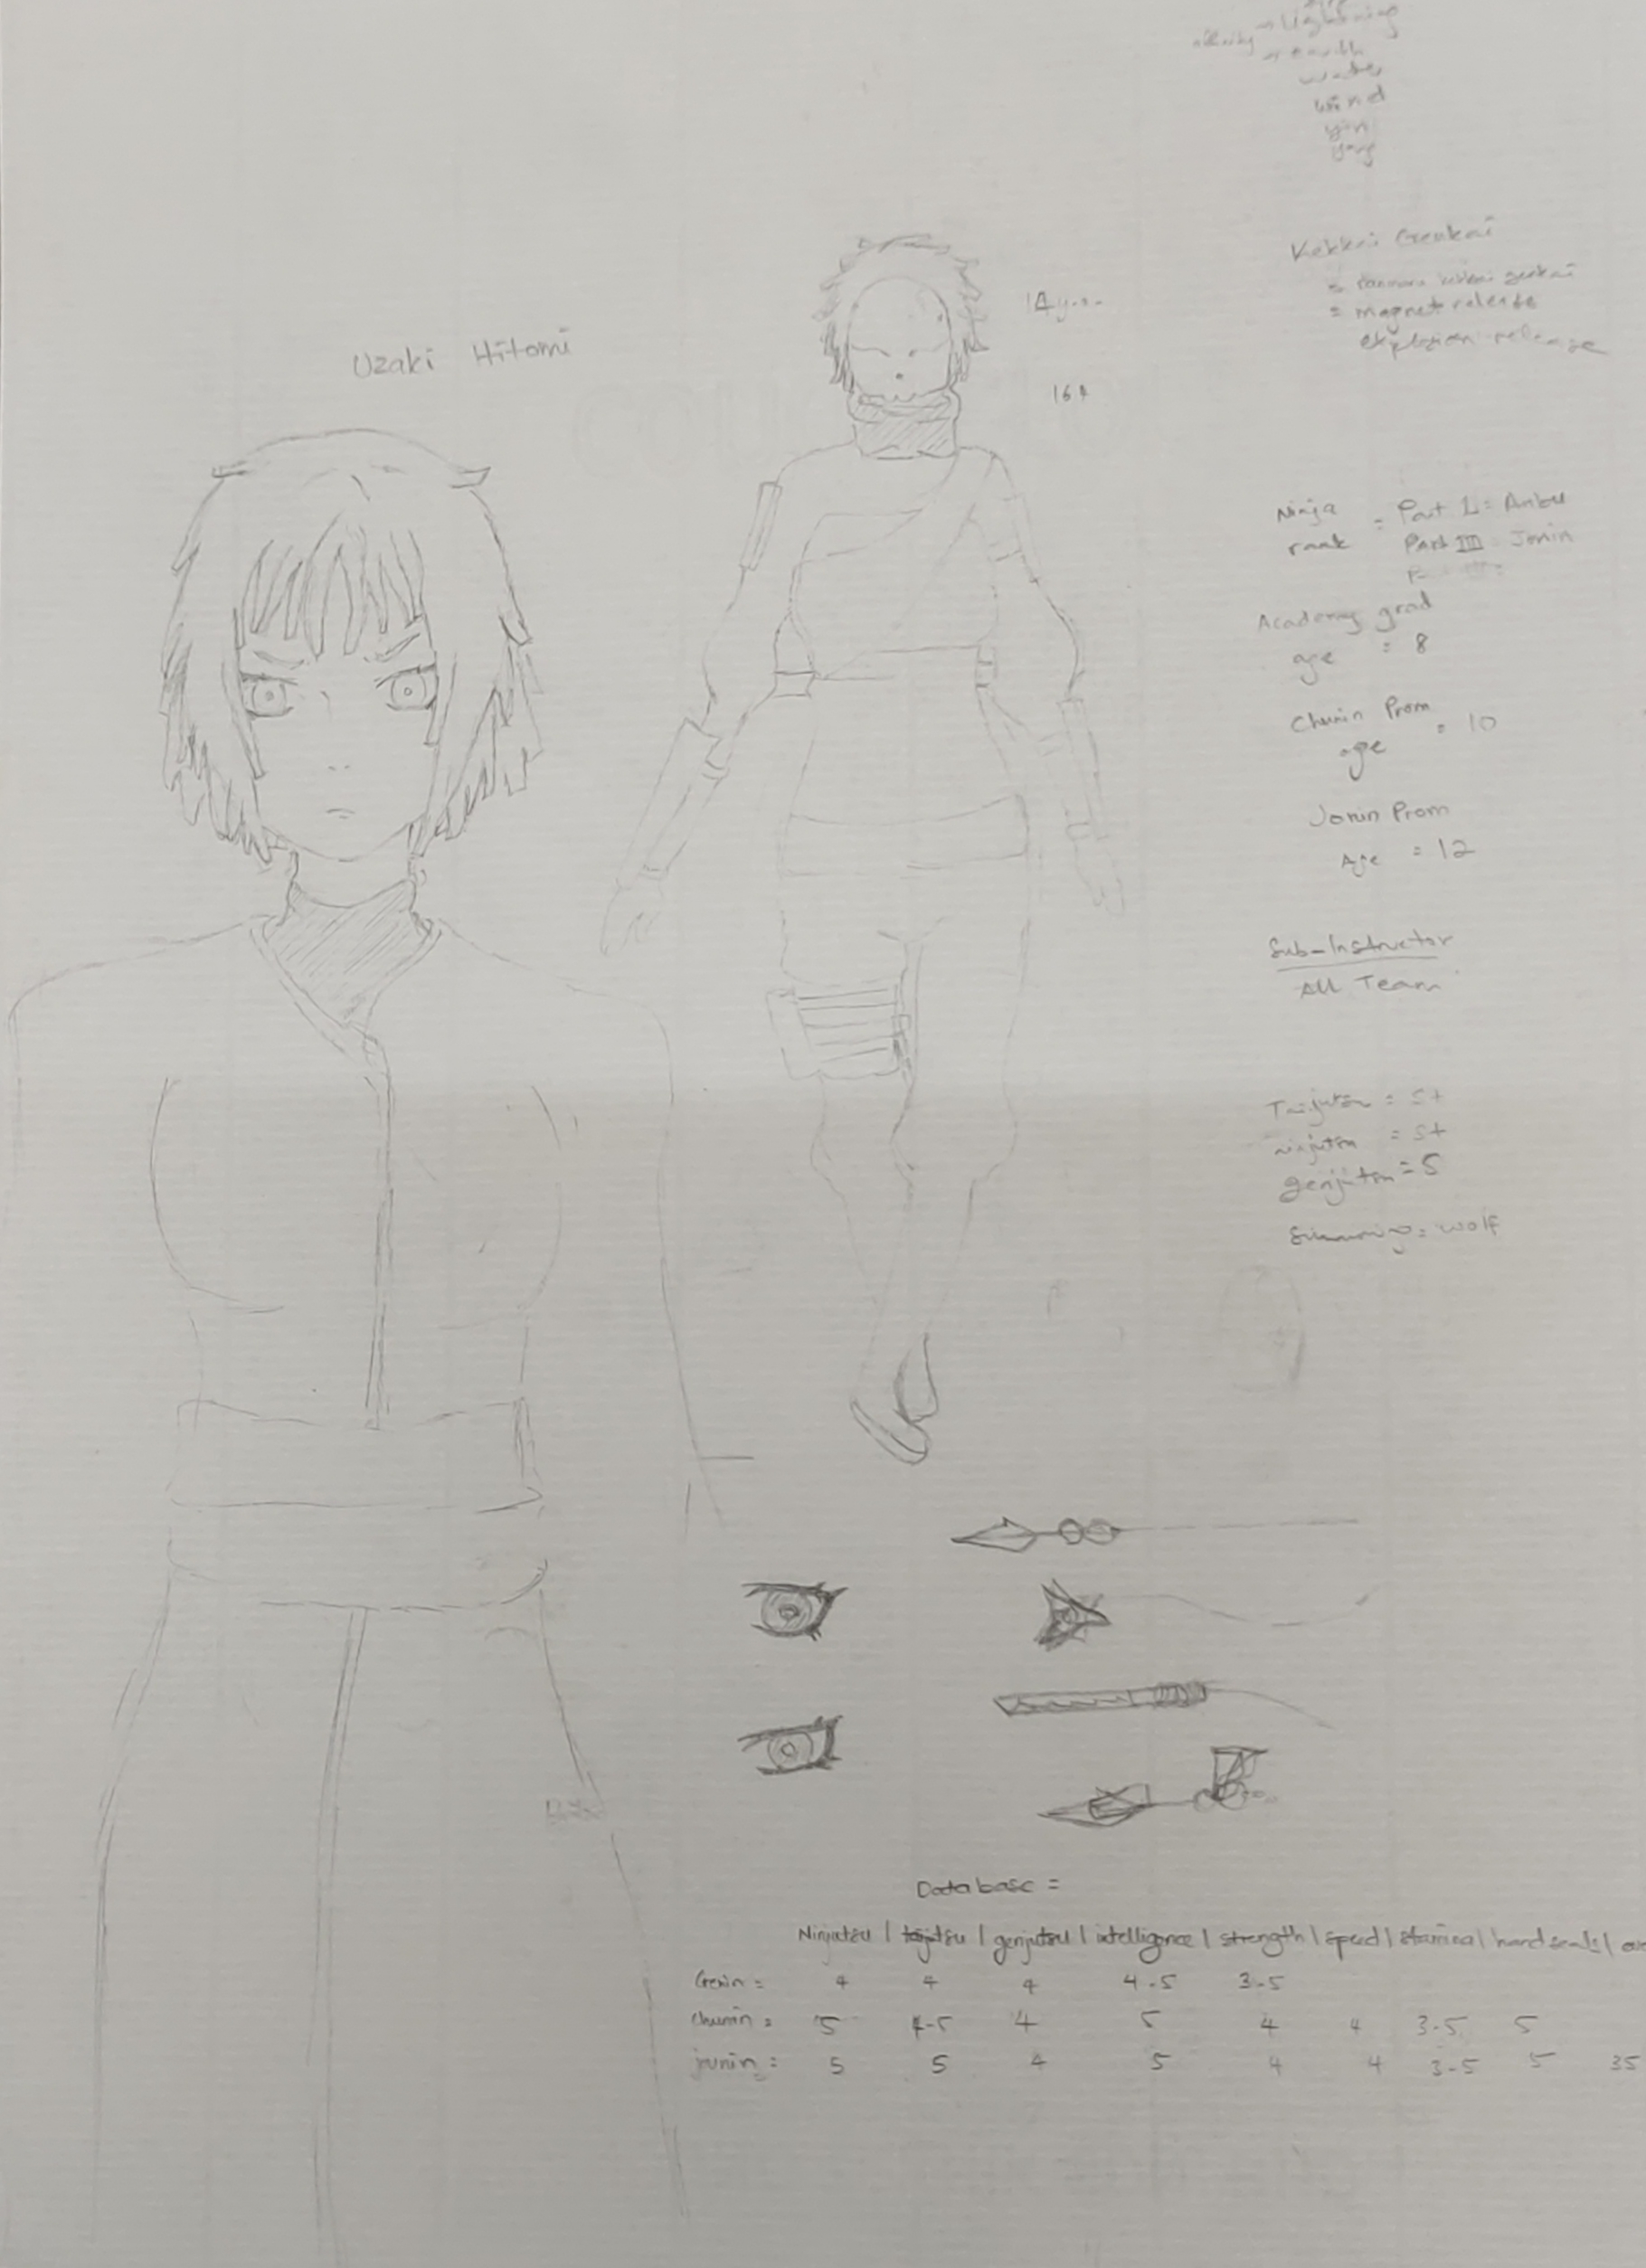 Lightning
earth
water
wind
yin
yang
Kekkei Genkai
= magnet release
explosion release
14 y.o.
164
Uzaki Hitomi
Ninja rank = Part I = Anbu
Part III = Jonin
Academy grad
age = 8
Chunin Prom
age = 10
Jonin Prom
Age = 12
Sub-Instructor
All Team
Taijutsu = 5+
ninjutsu = 5+
genjutsu = 5
Summoning = wolf
Database =
Ninjutsu | taijutsu | genjutsu | intelligence | strength | speed | stamina | hand seals |
Genin = 4 4 4 4.5 3.5
Chunin = 5 4.5 4 5 4 4 3.5 5
jounin = 5 5 4 5 4 4 3.5 5 35